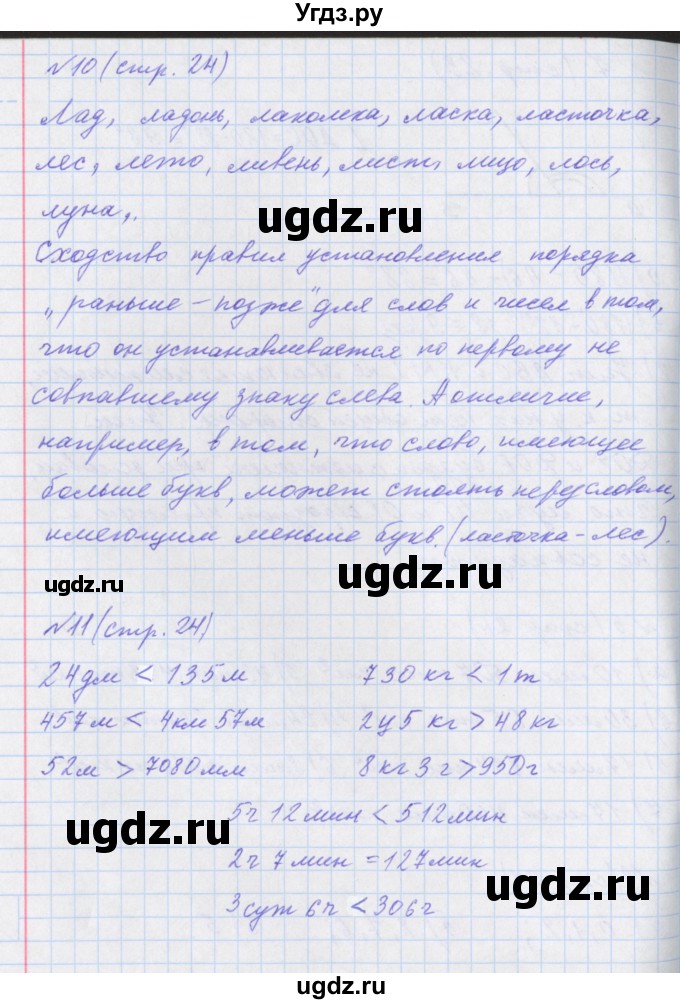 Угдз.ру
№10 (стр. 24)
Лад, ладонь, лакомка, ласка, ласточка,
лес, лето, ливень, лист, лицо, лось,
луна,.
ugdz.ru
ugdz.ru
Сходство правил установления порядка
„раньше – позже" для слов и чисел в том,
что он устанавливается по первому не
совпавшему знаку слева. А отличие,
например, в том, что слово, имеющее
ugdz.ru
больше букв, может стоять перед словом,
имеющим меньше букв. (ласточка – лес).
ugdz.ru
ugdz.ru
№11 (стр. 24)
24дм < 135м 730 кг < 1т
457м < 4км 57м 2ц 5 кг > 48 кг
52м > 7080мм 8 кг 3 г > 950г
ugdz.ru
5ч 12 мин < 512мин
2ч 7 мин = 127мин
ugdz.ru
3 сут 6ч < 306ч
ugdz.ru